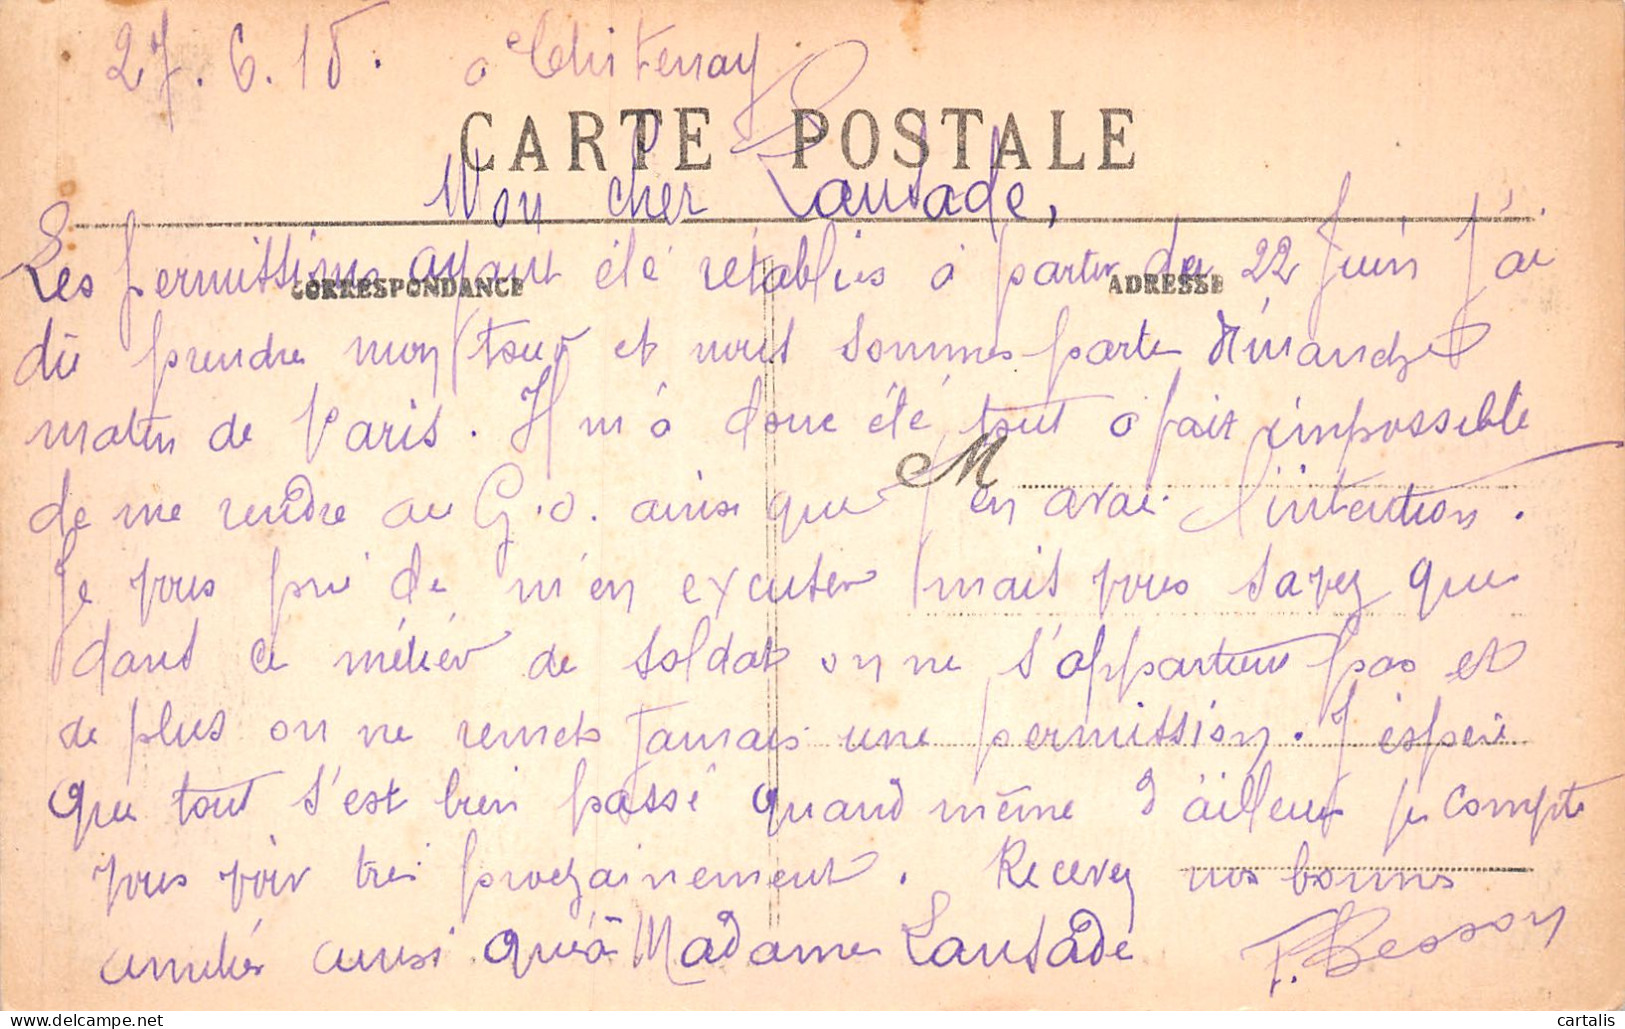 27.6.18. à Chitenay
CARTE POSTALE
Mon cher Lansade,
Les permissions ayant été rétablies à partir du 22 Juin j'ai
CORRESPONDANCE ADRESSE
dû prendre mon tour et nous sommes partis dimanche
matin de Paris. Il m'a donc été tout à fait impossible
M
de me rendre au G.O. ainsi que j'en avai l'intention.
Je vous pri de m'en excuser mais vous savez que
dans ce métier de soldat on ne s'appartient pas et
de plus on ne remet jamais une permission. J'espère
que tout s'est bien passé quand même d'ailleurs je compte
vous voir très prochainement. Recevez nos bonnes
amitiés ainsi qu'à Madame Lansade F. Besson
cartalis